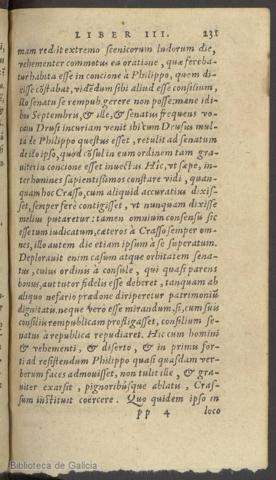 LIBER III. 231
mam redijt extremo scenicorum ludorum die,
vehementer commotus ea oratione, quæ fereba-
tur habita esse in concione à Philippo, quem di-
xisse cōstabat, vidēdum sibi aliud esse consilium,
illo senatu se rempub. gerere non posse: mane idi-
bus Septembris, & ille, & senatus frequens vo-
catu Drusi in curiam venit ibi cum Drusus mul-
ta de Philippo questus esset, retulit ad senatum
de illo ipso, quod cōsul in eum ordinem tam gra-
uiter in concione esset inuectus Hic, vt sæpe, in-
ter homines sapientissimos constare vidi, quan-
quam hoc Crasso, cum aliquid accuratius dixis-
set, semper ferè contigisset, vt nunquam dixisse
melius putaretur: tamen omnium consensu sic
esse tum iudicatum, cæteros à Crasso semper om-
nes, illo autem die etiam ipsum à se superatum.
Deplorauit enim casum atque orbitatem sena-
tus, cuius ordinis à consule, qui quasi parens
bonus, aut tutor fidelis esse deberet, tanquam ab
aliquo nefario prædone diriperetur patrimoniū
dignitatis. neque vero esse mirandum, si, cum suis
consiliis rempublicam profligasset, consilium se-
natus à republica repudiaret. Hic cum homini
& vehementi, & diserto, & in primis for-
ti ad resistendum Philippo quasi quasdam ver-
borum faces admouisset, non tulit ille, & gra-
uiter exarsit, pignoribúsque ablatis, Cras-
sum instituit coërcere. Quo quidem ipso in
PP 4 loco
Biblioteca de Galicia